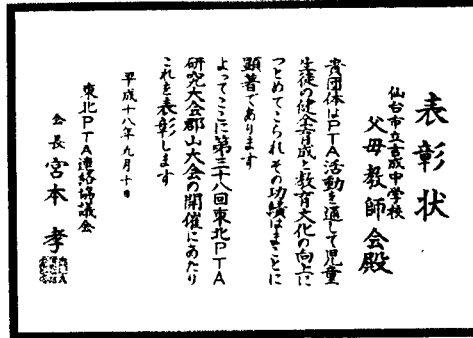 表彰状
仙台市立吉成中学校
父母教師会殿
貴団体はPTA活動を通して児童
生徒の健全育成と教育文化の向上に
つとめてこられその功績はまことに
顕著であります
よってここに第三十八回東北PTA
研究大会郡山大会の開催にあたり
これを表彰します
平成十八年九月十日
東北PTA連絡協議会
会長 宮本 孝